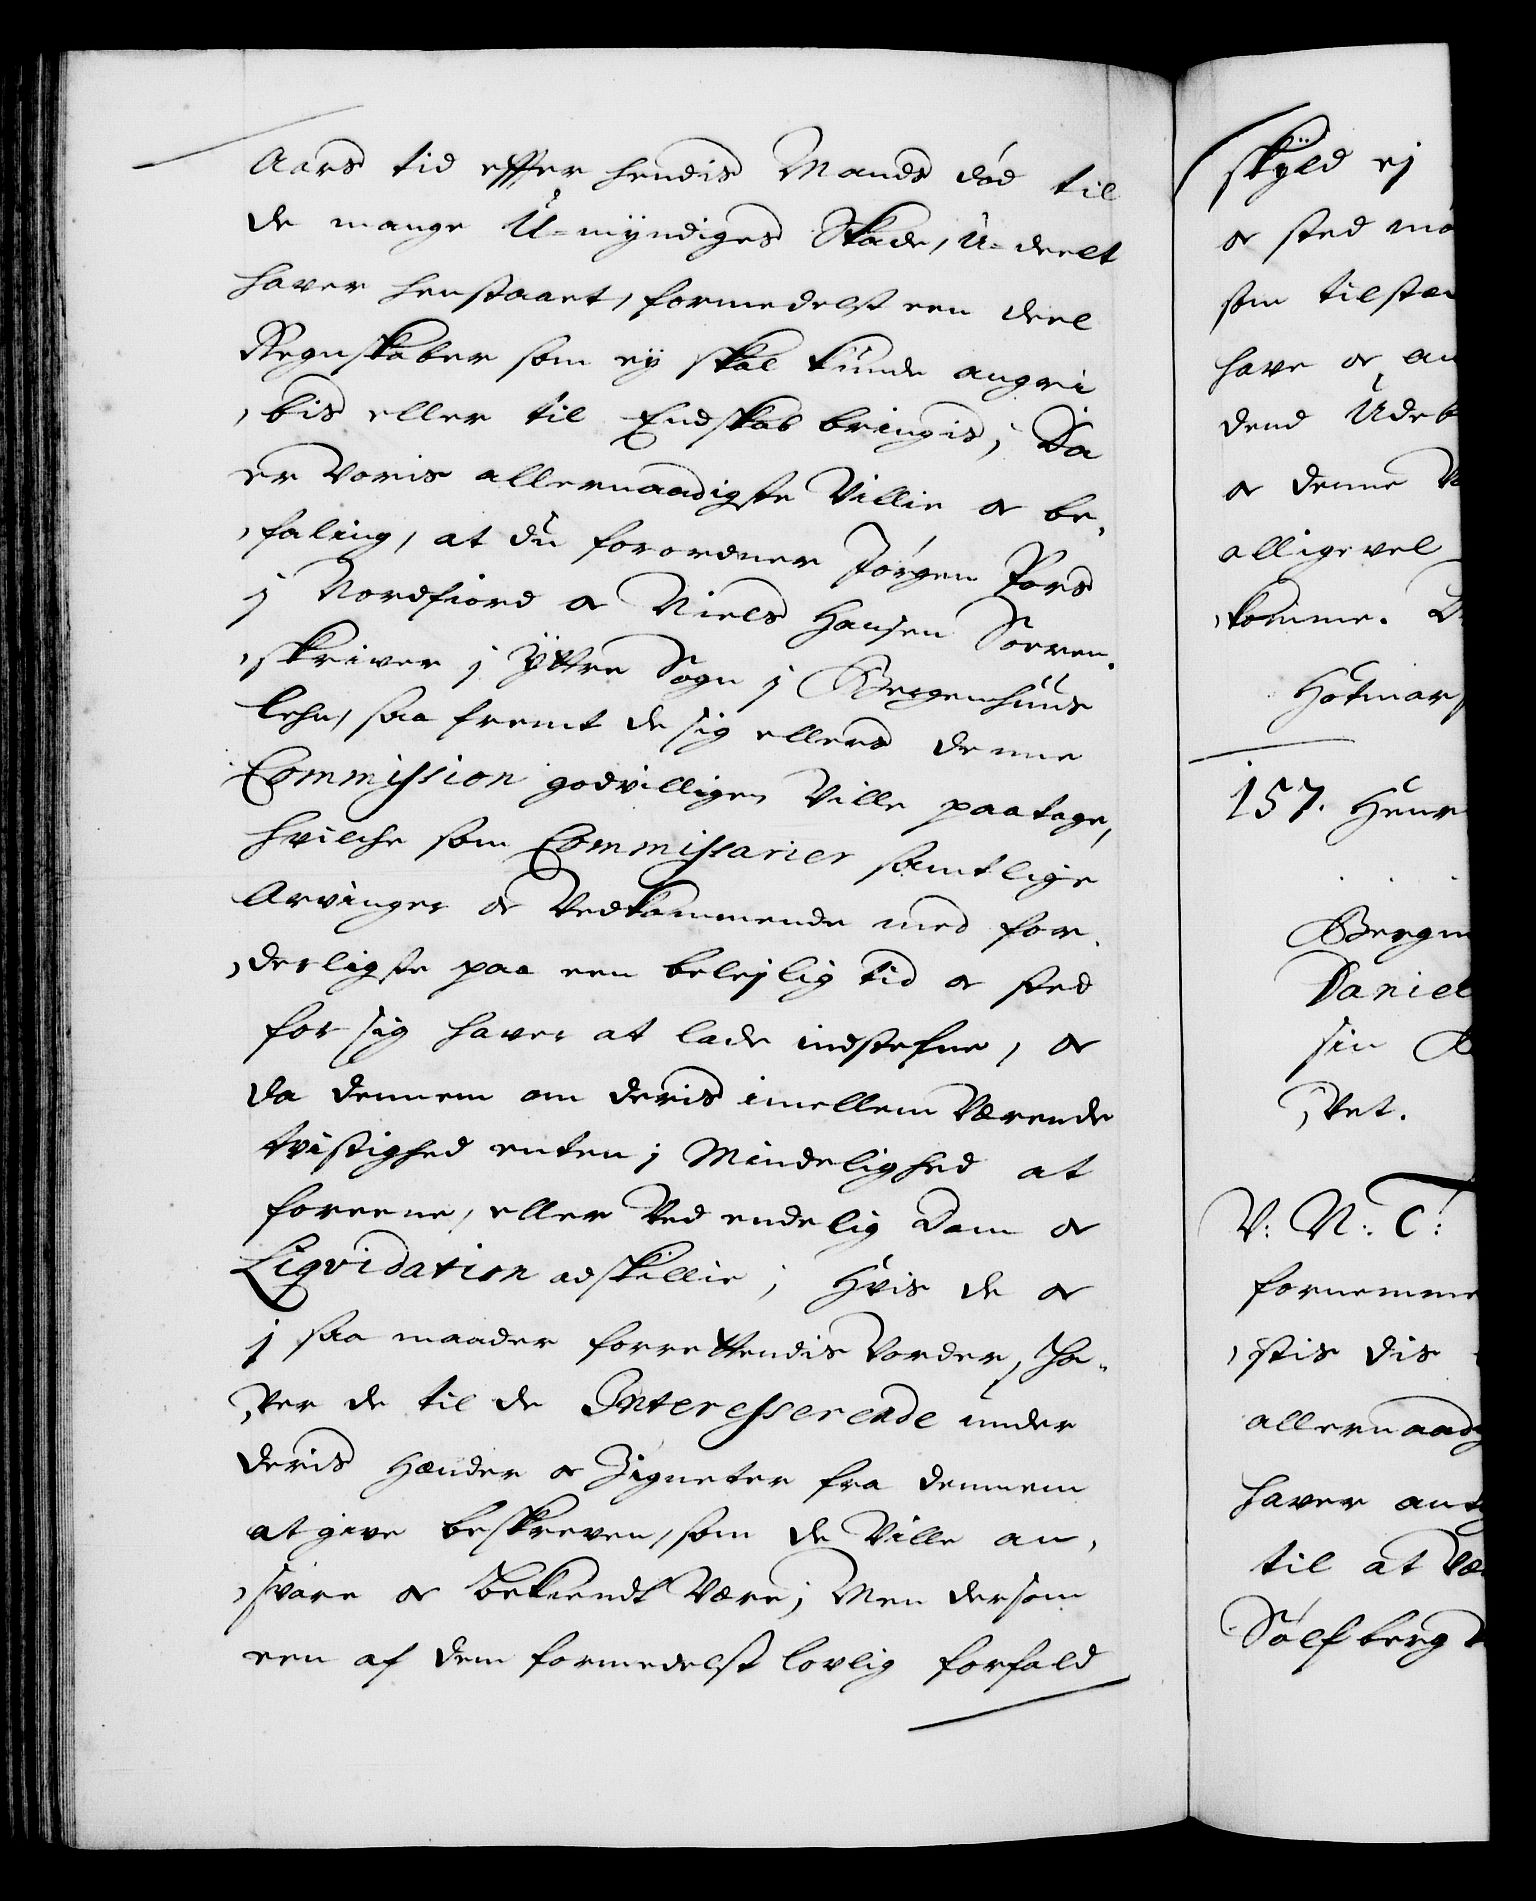 Aars tid effter hendis Mands død til
de mange U-myndiges Skade, U-deelt
haver henstaaet, formedelst een deel
Regnskaber som ey skal kunde angri
bis eller til Endskab bringis, Da
er Voris allernaadigste Villie oc be,
,faling, at du forordner Jørgen Fors
j Nordfiord oc Niels Hansen Soeren,
,skriver j Yttre Sogn j Bergenhuus
lehn, saa fremt de sig ellers denne
Commission godvilligen Ville paatage,
hvilche som Commissarier samtlige
Arvinger oc Vedkommende med for,
,derligste paa een belejlig tid oc sted
for sig haver at lade indstefne, oc
da dennem om deris imellem Værende
tvistighed enten j Mindelighed at
foreene, eller Ved endelig Dom oc
Liqvidation adskillie; Hvis de oc
j saa maader forrettendis Vorder, Ha,
,ver de til de Interesserende under
deris Hænder oc Zigneter fra dennem
at give beskreven, som de Ville an,
,svare oc bekiendt Være; Men dersom
een af dem formedelst lovlig forfald
skyld ej
oc sted mø
som tilstæ
have oc an
dend Udeb
oc denne
alligevel
,komme.
157. Henr
Bergen
Daniel
sin
,vet.
V: N: C:
fornemme
,stis dis
allernaad
haver ant
til at væ
Sølfberg